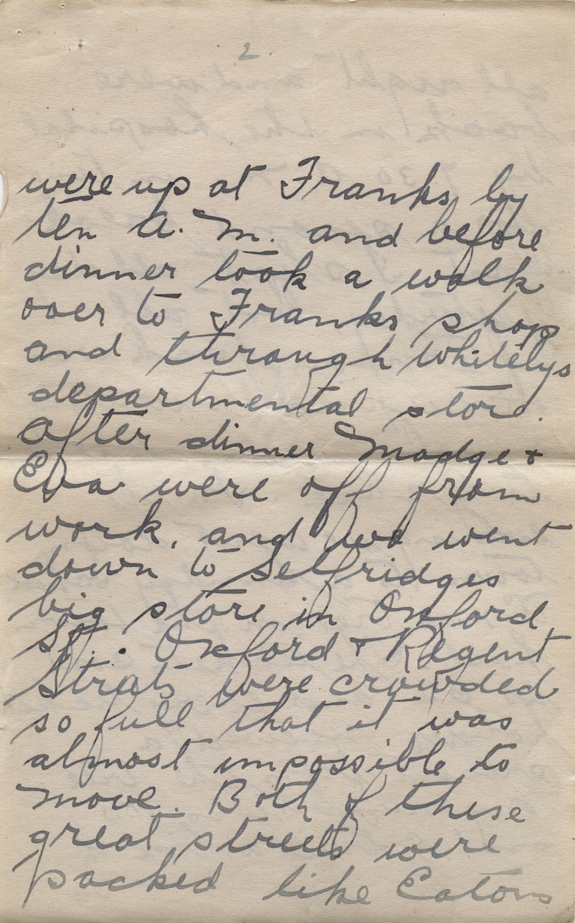 2.
were up at Franks by
ten A.M. and before
dinner took a walk
over to Franks shop
and through Whitelys
departmental store.
After dinner Madge +
Eva were off from
work, and we went
down to Selfridges
big store in Oxford
St. Oxford + Regent
Strats were crowded
so full that it was
almost impossible to
move. Both of these
great streets were
packed like Eatons